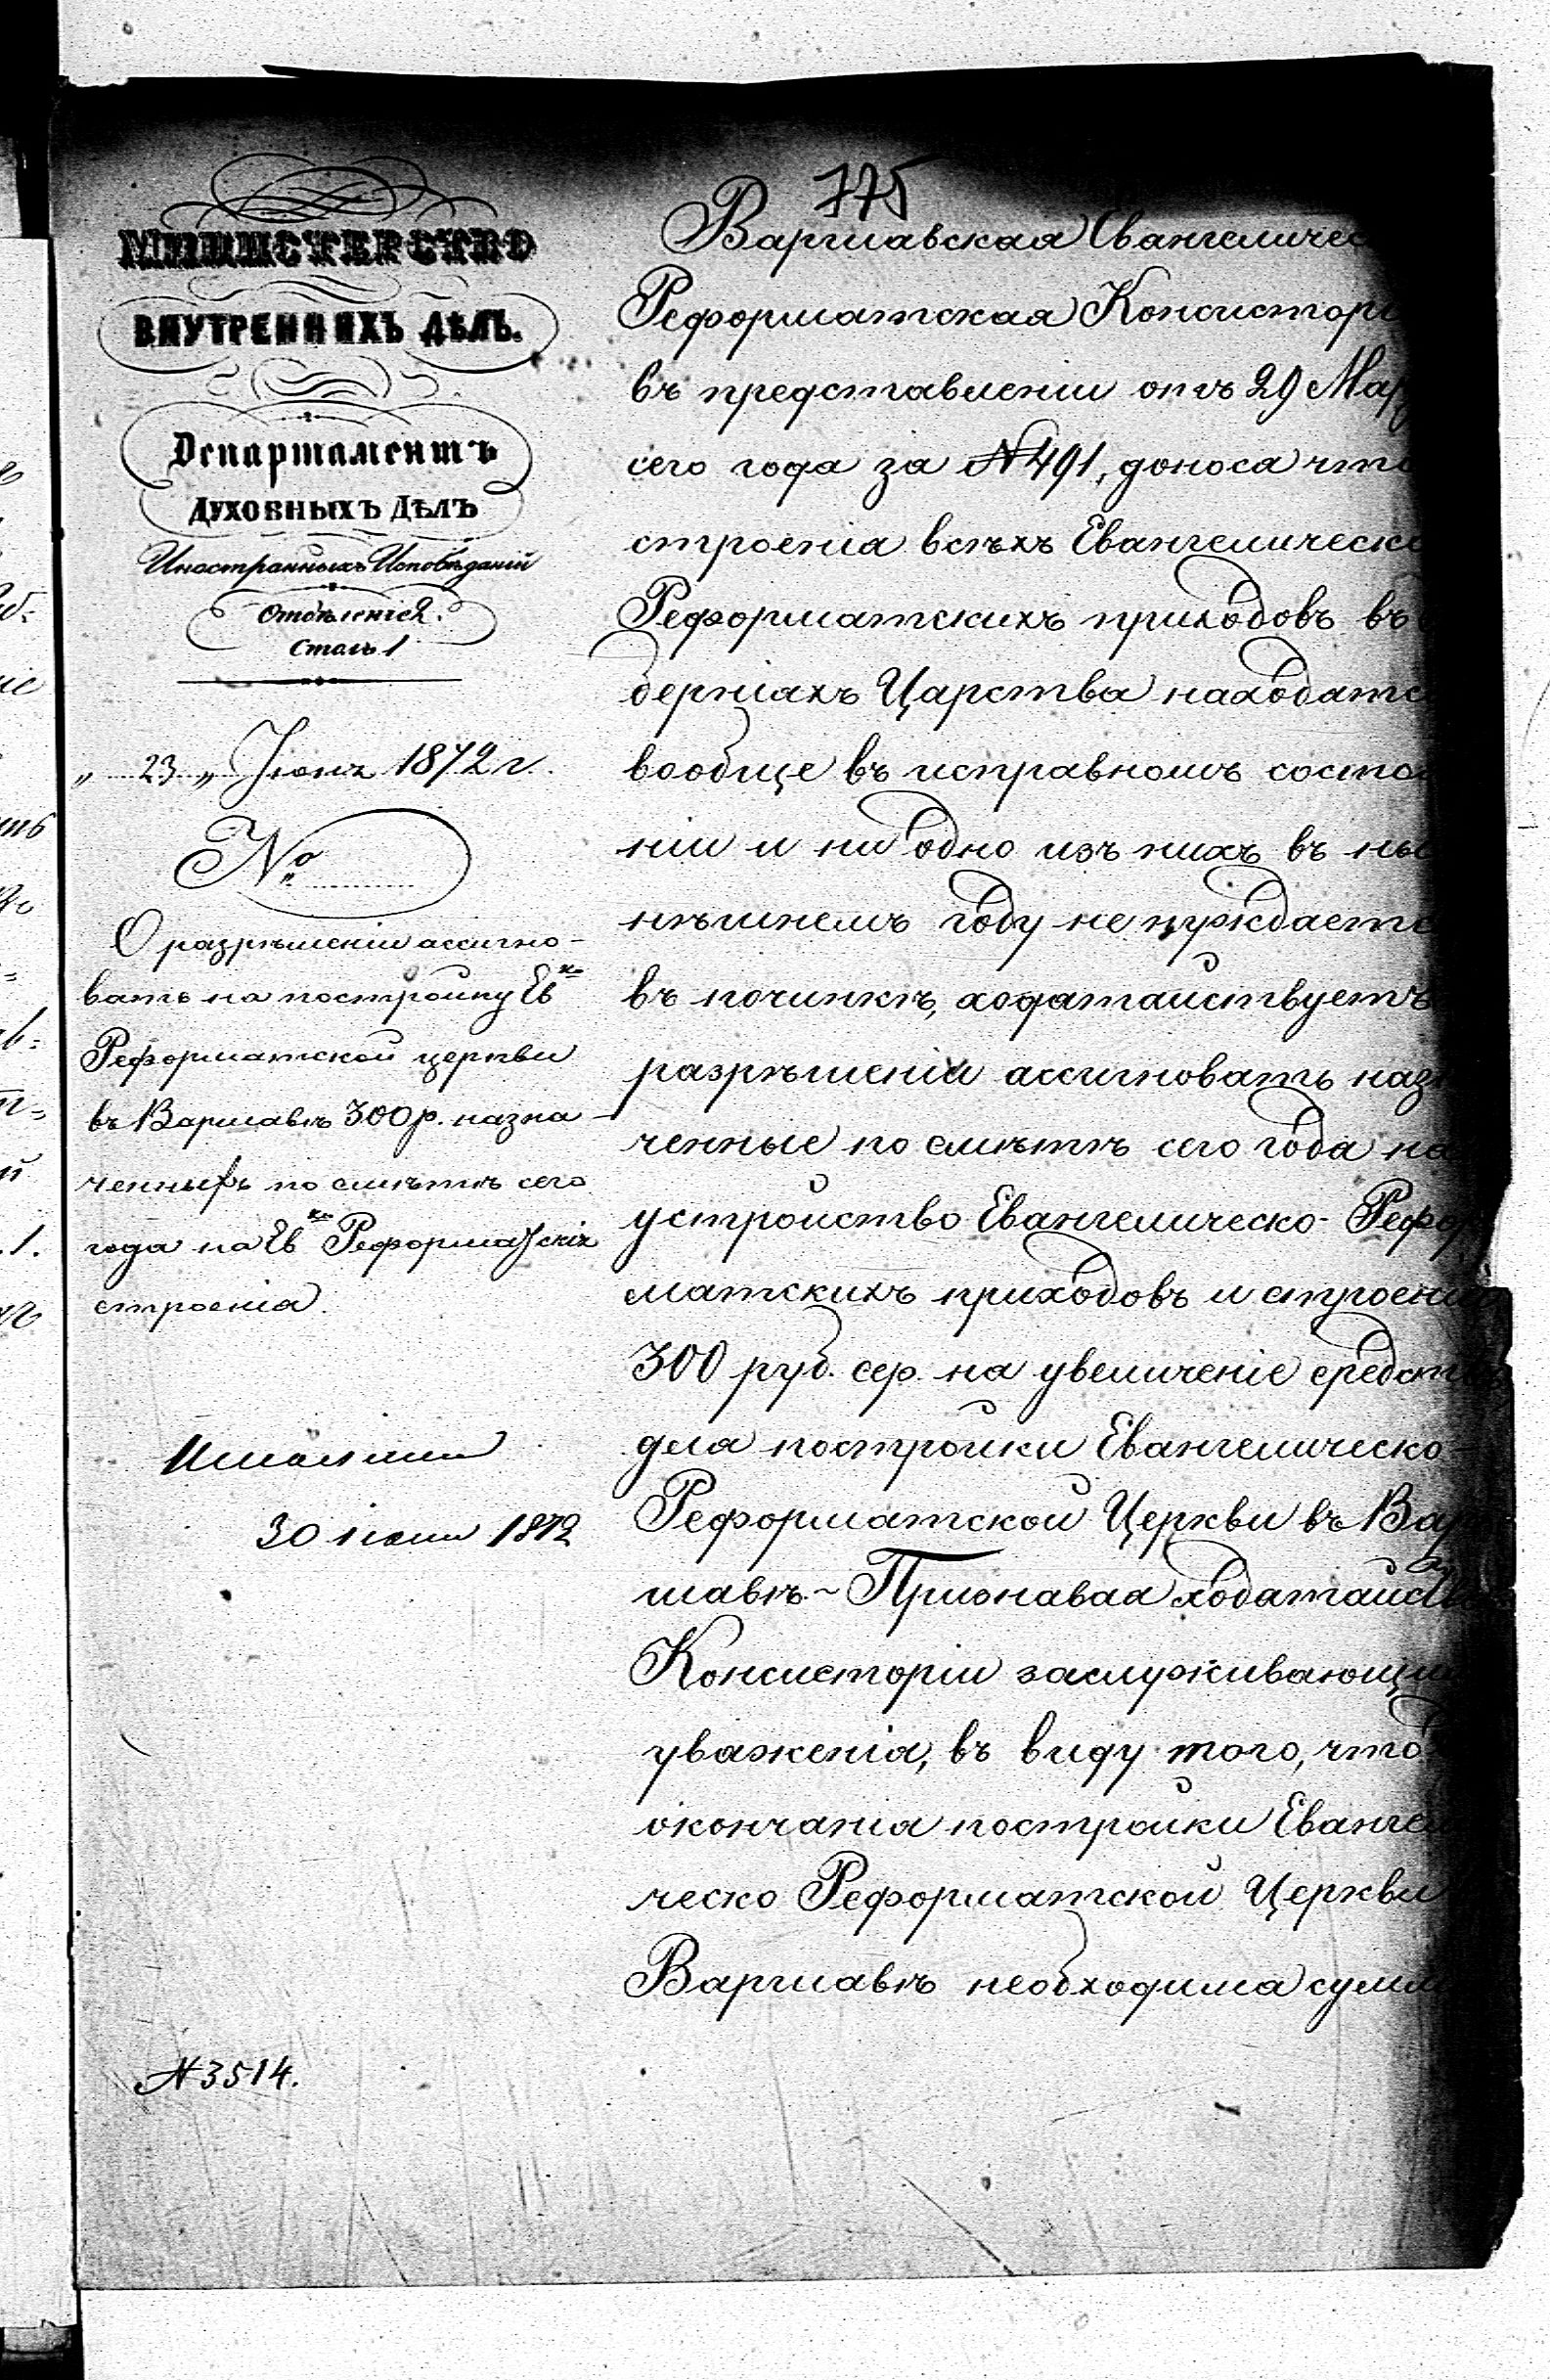 775
МИНИСТЕРСТВО
ВНУТРЕННИХЪ ДѢЛЪ.
Департаментъ
ДУХОВНЫХЪ ДѢЛЪ
Иностранныхъ Исповѣданій
Отдѣленіе 2.
Столъ 1
„ 23 „ Іюня 1872 г.
№
О разрѣшеніи ассигно-
вать на постройку Ев ко
Реформатской церкви
въ Варшавѣ 300 р. назна-
ченныхъ по смѣтѣ сего
года на Ев ко Реформатскія
строенія.
30 іюня 1872
N 3514.
Варшавская Евангеличес
Реформатская Консистор
въ представленіи отъ 29 Мар
сего года за N 491, донося что
строенія всѣхъ Евангелическо
Реформатскихъ приходовъ въ
берніяхъ Царства находятс
вообще въ исправномъ состоя
ніи и ни одно изъ нихъ въ ны
нѣшнемъ году не нуждаетс
въ починкѣ, ходатайствуетъ
разрѣшеніи ассигновать назн
ченные по смѣтѣ сего года на
устройство Евангелическо-Рефор
матскихъ приходовъ и строені
300 руб. сер. на увеличеніе средствъ
для постройки Евангелическо-
Реформатской Церкви въ Вар
шавѣ.~ Признавая ходатайств
Консисторіи заслуживающи
уваженія, въ виду того, что
окончанія постройки Евангел
ческо Реформатской Церкви
Варшавѣ необходима сумм